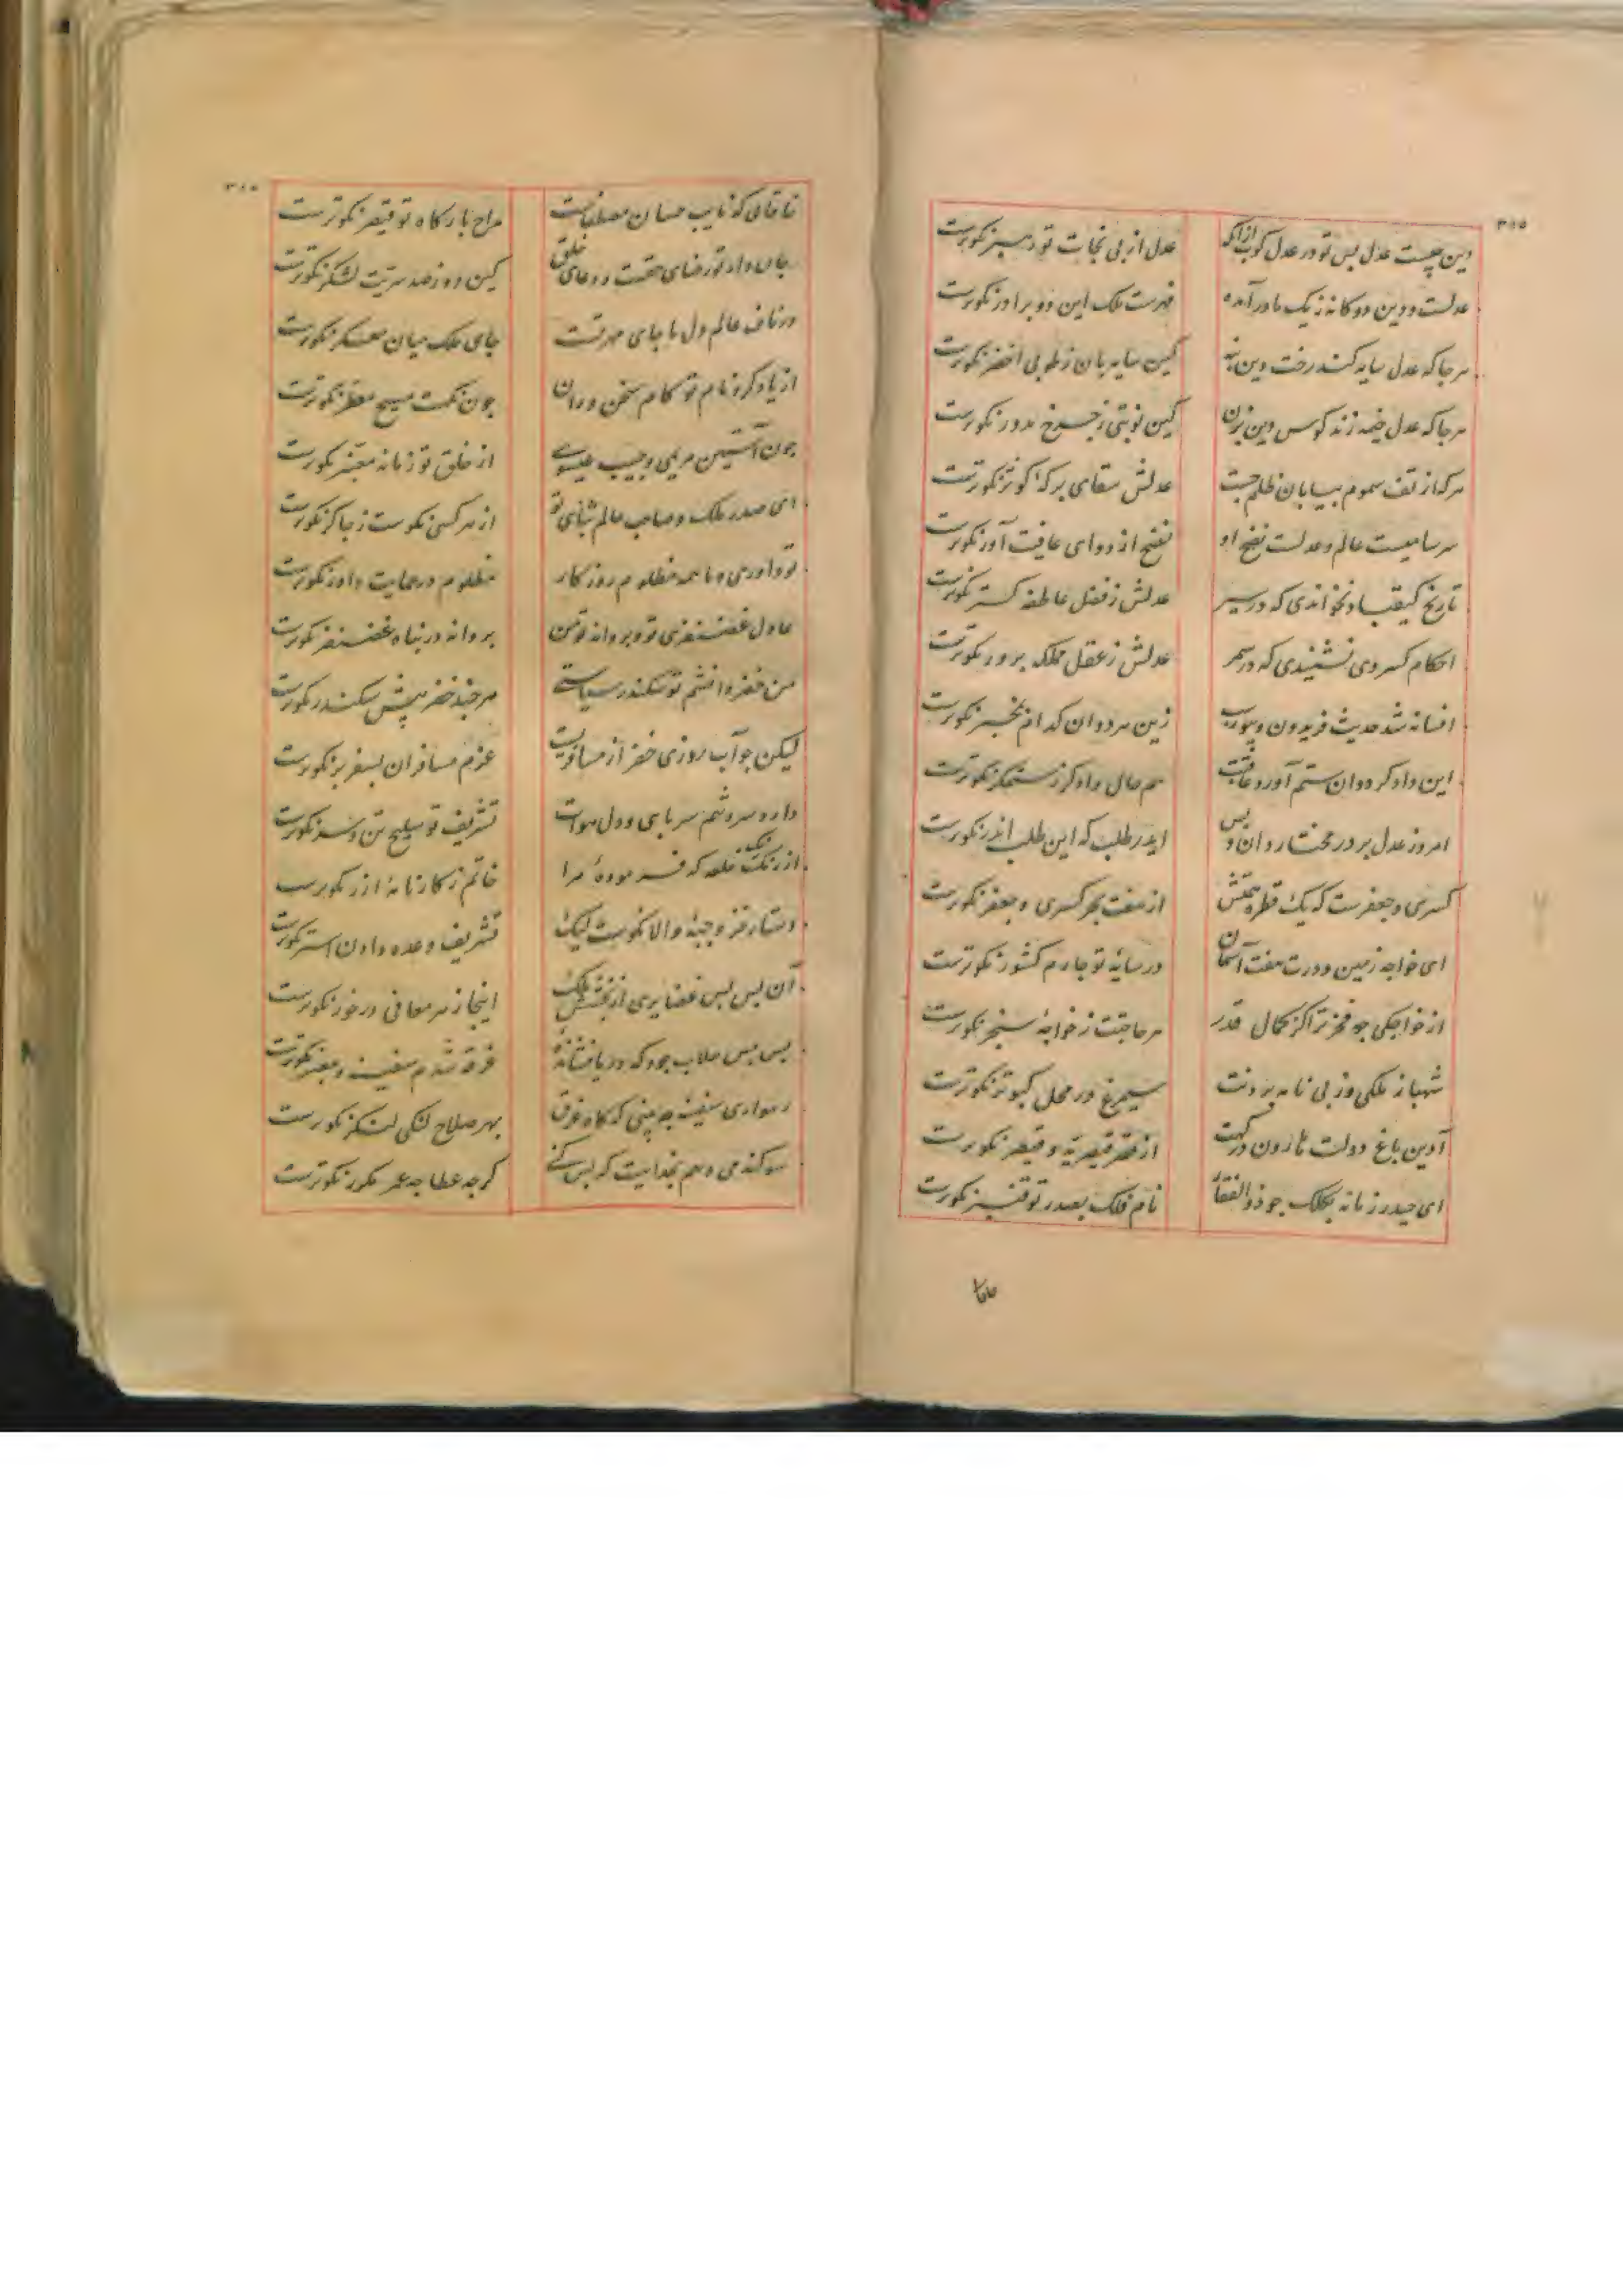 ۳۱۵
دین چیست عدل پس تو در عدل کوب ازآنکه عدل از پی نجات تو رهبر نکوترست
عدلست و دین دوکانه ز یک مادر آمده فهرست ملک این دو برادر نکوترست
هرجا که عدل سایه کند رخت دین بنه کین سایه‌بان ز طوبی اخضر نکوترست
هرجا که عدل خیمه زند کوس دین بزن کین نوبتی ز چرخ مدور نکوترست
هرکه از تف سموم بیابان ظلم جست عدلش سقای برکهٔ کوثر نکوترست
سرسامیست عالم و عدلست نضج او نضج از دوای عافیت آور نکوترست
تاریخ کیقباد نخواندی که در سیر عدلش ز فضل عاطفه کستر نکوترست
احکام کسروی نشنیدی که در سمر عدلش ز عقل مملکه پرور نکوترست
افسانه شد حدیث فریدون و بیوراسب زین هر دوان کدام بمخبر نکوترست
این دادکر و آن ستم آورد عاقبت هم حال دادکر ز ستمکر نکوترست
امروز عدل بر در مختار دان و بس ایدر طلب که این طلب ایدر نکوترست
کسری و جعفرست که یک قطره همتش از هفت بحر کسری و جعفر نکوترست
ای خواجه زمین و درت هفت آسمان در سایهٔ تو چارم کشور نکوترست
از خواجکی چه فخر ترا کز کمال قدر هر حاجبت ز خواجهٔ سنجر نکوترست
شهباز ملکی و ز پی نامه بردنت سیمرغ در محل کبوتر نکوترست
آذین باغ دولت هارون درکهت از قصر قیصریه و قیصر نکوترست
ای حیدر زمانه بکلک چو ذوالفقار نام فلک بصدر تو قنبر نکوترست
خاقا
۳۱۵
خاقانی که نایب حسان مصطفاست مداح بارکاه تو قیصر نکوترست
جان داد تو رضای حقست و دعای خلق کین دو ز صد سریت لشکر نکوترست
در ناف عالم دل ما جای مهر تست جای ملک میان معسکر نکوترست
از یاد کرد نام تو کام سخن وران چون نکهت مسیح معطر نکوترست
چون آستین مریمی و جیب عیسوی از خلق تو زمانه معنبر نکوترست
ای صدر ملک و صاحب عالم ثنای تو از هر کسی نکوست ز چاکر نکوترست
تو داوری و ما همه مظلوم روزکار مظلوم در حمایت داور نکوترست
عادل غضنفری تو و پروانهٔ تو من پروانه در پناه غضنفر نکوترست
من خضر دانشم تو سکندر سیاستی هر چند خضر پیش سکندر نکوترست
لیکن چو آب روزی خضر از مسافریست عزم مسافران بسفر بر نکوترست
تشریف تو سلیح تن و سر نکوترست
از رنک‌رنک خلعه که فرمودهٔ مرا خاتم ز کارنامهٔ آزر نکوترست
دستار خز و جبهٔ والا نکوست لیک تشریف وعده دادن استر نکوترست
آن پس پس غضایری از بخشش ملک اینجا ز هر معانی درخور نکوترست
غرقه شدم سفینه و معبر نکوترست
رهواری سفینه چه بینی که کاه غرق بهر صلاح لنکی لنکر نکوترست
سوکند می دهم بخدایت که بس کنی کرچه عطا چه عمر مکرر نکوترست